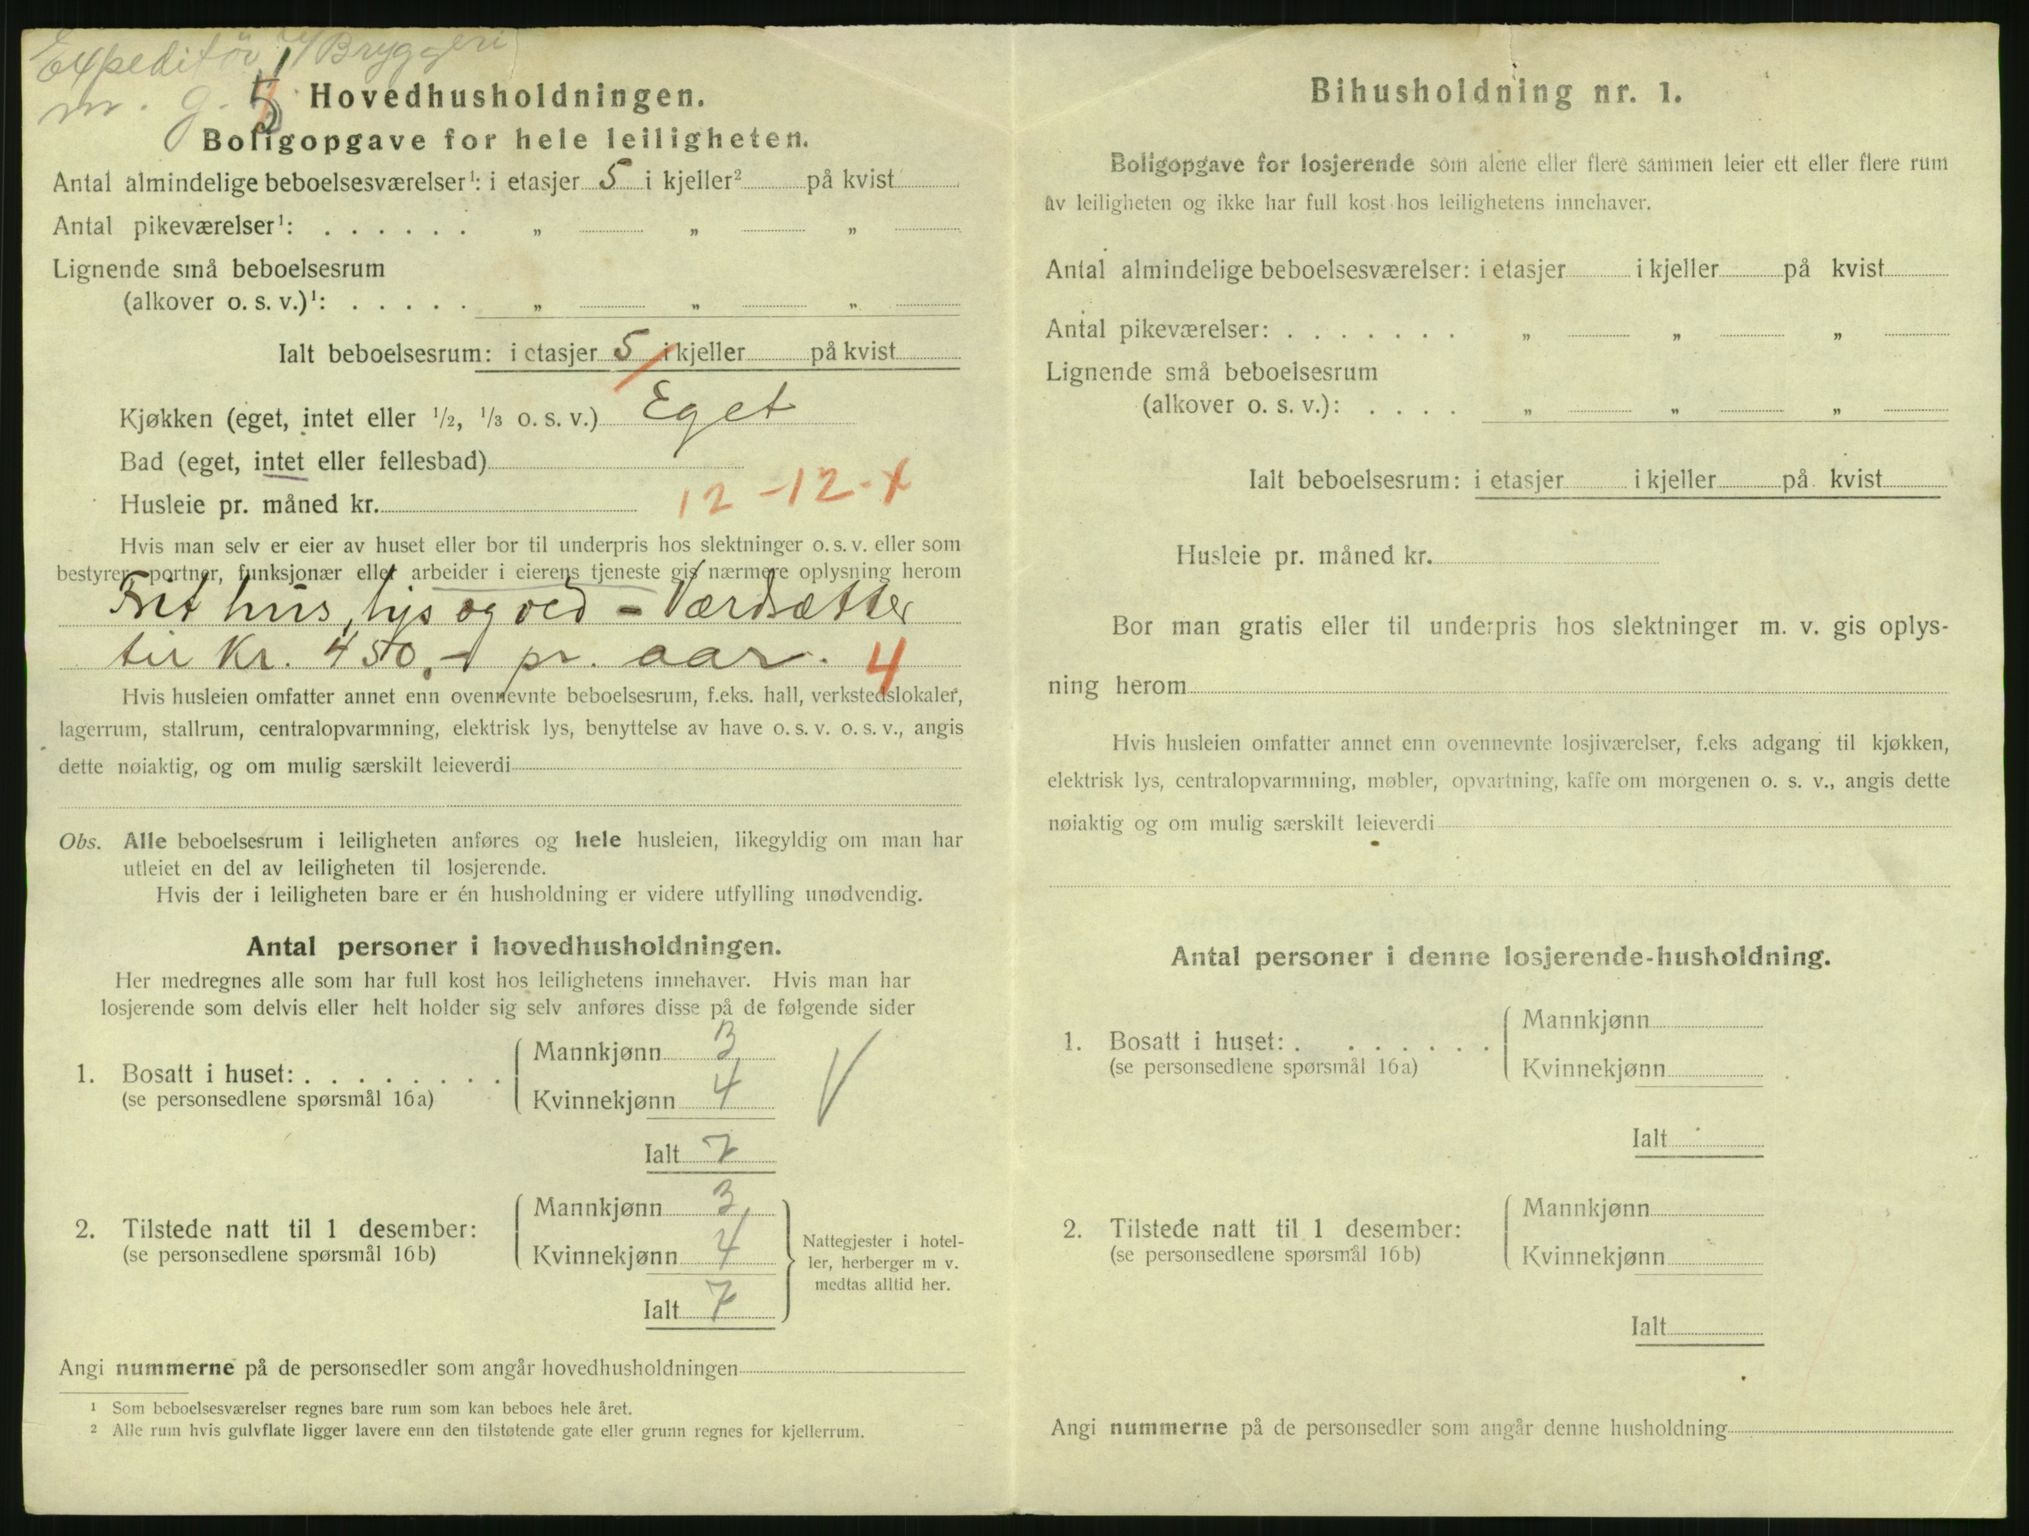 Expeditør v/ Bryggeri
m. g. 5
Hovedhusholdningen.
Boligopgave for hele leiligheten.
Antal almindelige beboelsesværelser¹: i etasjer 5 i kjeller² på kvist
Antal pikeværelser¹: . . . . . . „ „ „
Lignende små beboelsesrum
(alkover o. s. v.)¹: . . . . . „ „ „
Ialt beboelsesrum: i etasjer 5 i kjeller på kvist
Kjøkken (eget, intet eller 1/2, 1/3 o. s. v.) Eget
Bad (eget, intet eller fellesbad)
Husleie pr. måned kr. 12-12-x
Hvis man selv er eier av huset eller bor til underpris hos slektninger o. s. v. eller som
bestyrer, portner, funksjonær eller arbeider i eierens tjeneste gis nærmere oplysning herom
Frit hus, lys og ved - Værdsætter
til Kr. 450,- pr. aar. 4
Hvis husleien omfatter annet enn ovennevnte beboelsesrum, f.eks. hall, verkstedslokaler,
lagerrum, stallrum, centralopvarmning, elektrisk lys, benyttelse av have o. s. v. o. s. v., angis
dette nøiaktig, og om mulig særskilt leieverdi
Obs. Alle beboelsesrum i leiligheten anføres og hele husleien, likegyldig om man har
utleiet en del av leiligheten til losjerende.
Hvis der i leiligheten bare er én husholdning er videre utfylling unødvendig.
Antal personer i hovedhusholdningen.
Her medregnes alle som har full kost hos leilighetens innehaver. Hvis man har
losjerende som delvis eller helt holder sig selv anføres disse på de følgende sider
Mannkjønn 3
1. Bosatt i huset: . . . . . . . .
(se personsedlene spørsmål 16a)
Kvinnekjønn 4
Ialt 7
Mannkjønn 3
2. Tilstede natt til 1 desember:
(se personsedlene spørsmål 16b)
Kvinnekjønn 4
Ialt 7
Nattegjester i hotel-
ler, herberger m v.
medtas alltid her.
Angi nummerne på de personsedler som angår hovedhusholdningen
¹ Som beboelsesværelser regnes bare rum som kan beboes hele året.
² Alle rum hvis gulvflate ligger lavere enn den tilstøtende gate eller grunn regnes for kjellerrum.
Bihusholdning nr. 1.
Boligopgave for losjerende som alene eller flere sammen leier ett eller flere rum
av leiligheten og ikke har full kost hos leilighetens innehaver.
Antal almindelige beboelsesværelser: i etasjer i kjeller på kvist
Antal pikeværelser: . . . . . . . „ „ „
Lignende små beboelsesrum
(alkover o. s. v.): . . . . „ „ „
Ialt beboelsesrum: i etasjer i kjeller på kvist
Husleie pr. måned kr.
Bor man gratis eller til underpris hos slektninger m. v. gis oplys-
ning herom
Hvis husleien omfatter annet enn ovennevnte losjiværelser, f.eks adgang til kjøkken,
elektrisk lys, centralopvarmning, møbler, opvartning, kaffe om morgenen o. s. v., angis dette
nøiaktig og om mulig særskilt leieverdi
Antal personer i denne losjerende-husholdning.
Mannkjønn
1. Bosatt i huset: . . . . . . .
(se personsedlene spørsmål 16a)
Kvinnekjønn
Ialt
Mannkjønn
2. Tilstede natt til 1 desember:
(se personsedlene spørsmål 16b)
Kvinnekjønn
Ialt
Angi nummerne på de personsedler som angår denne husholdning